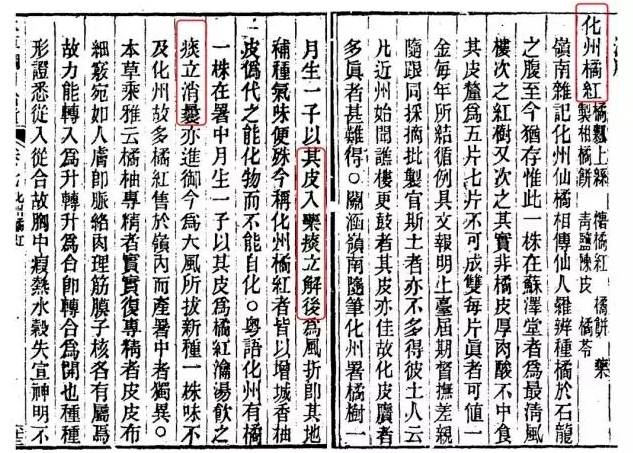 化州橘紅
橘瓤上絲 櫓橘紅 橘餅 藥
製柑橘餅 青鹽陳皮 橘苓
嶺南雜記化州仙橘相傳仙人羅辨種橘於石龍
之腹至今猶存惟此一株在蘇澤堂者爲最清風
樓次之紅樹又次之其實非橘皮厚肉酸不中食
其皮釐爲五片七片不可成雙每片眞者可値一
金每年所結循例具文報明上臺屆期督撫差親
隨跟同採摘批製官斯土者亦不多得彼土人云
凡近州始聞譙樓更鼓者其皮亦佳故化皮贗者
多眞者甚難得。關涵嶺南隨筆化州署橘樹一
月生一子以其皮入藥痰立解後爲風折卽其地
補種氣味便殊今稱化州橘紅者皆以增城香柚
皮僞代之能化物而不能自化。粤語化州有橘
一株在署中月生一子以其皮爲橘紅瀹湯飲之
痰立消曩亦進御今爲大風所拔新種一株味不
及化州故多橘紅售於嶺內而產署中者獨異。
本草乘雅云橘柚專精者實實復專精者皮皮布
細竅宛如人膚卽脈絡肉理筋膜子核各有屬焉
故力能轉入爲升轉升爲合卽轉合爲開也種種
形證悉從入從合故胸中瘕熱水穀失宣神明不